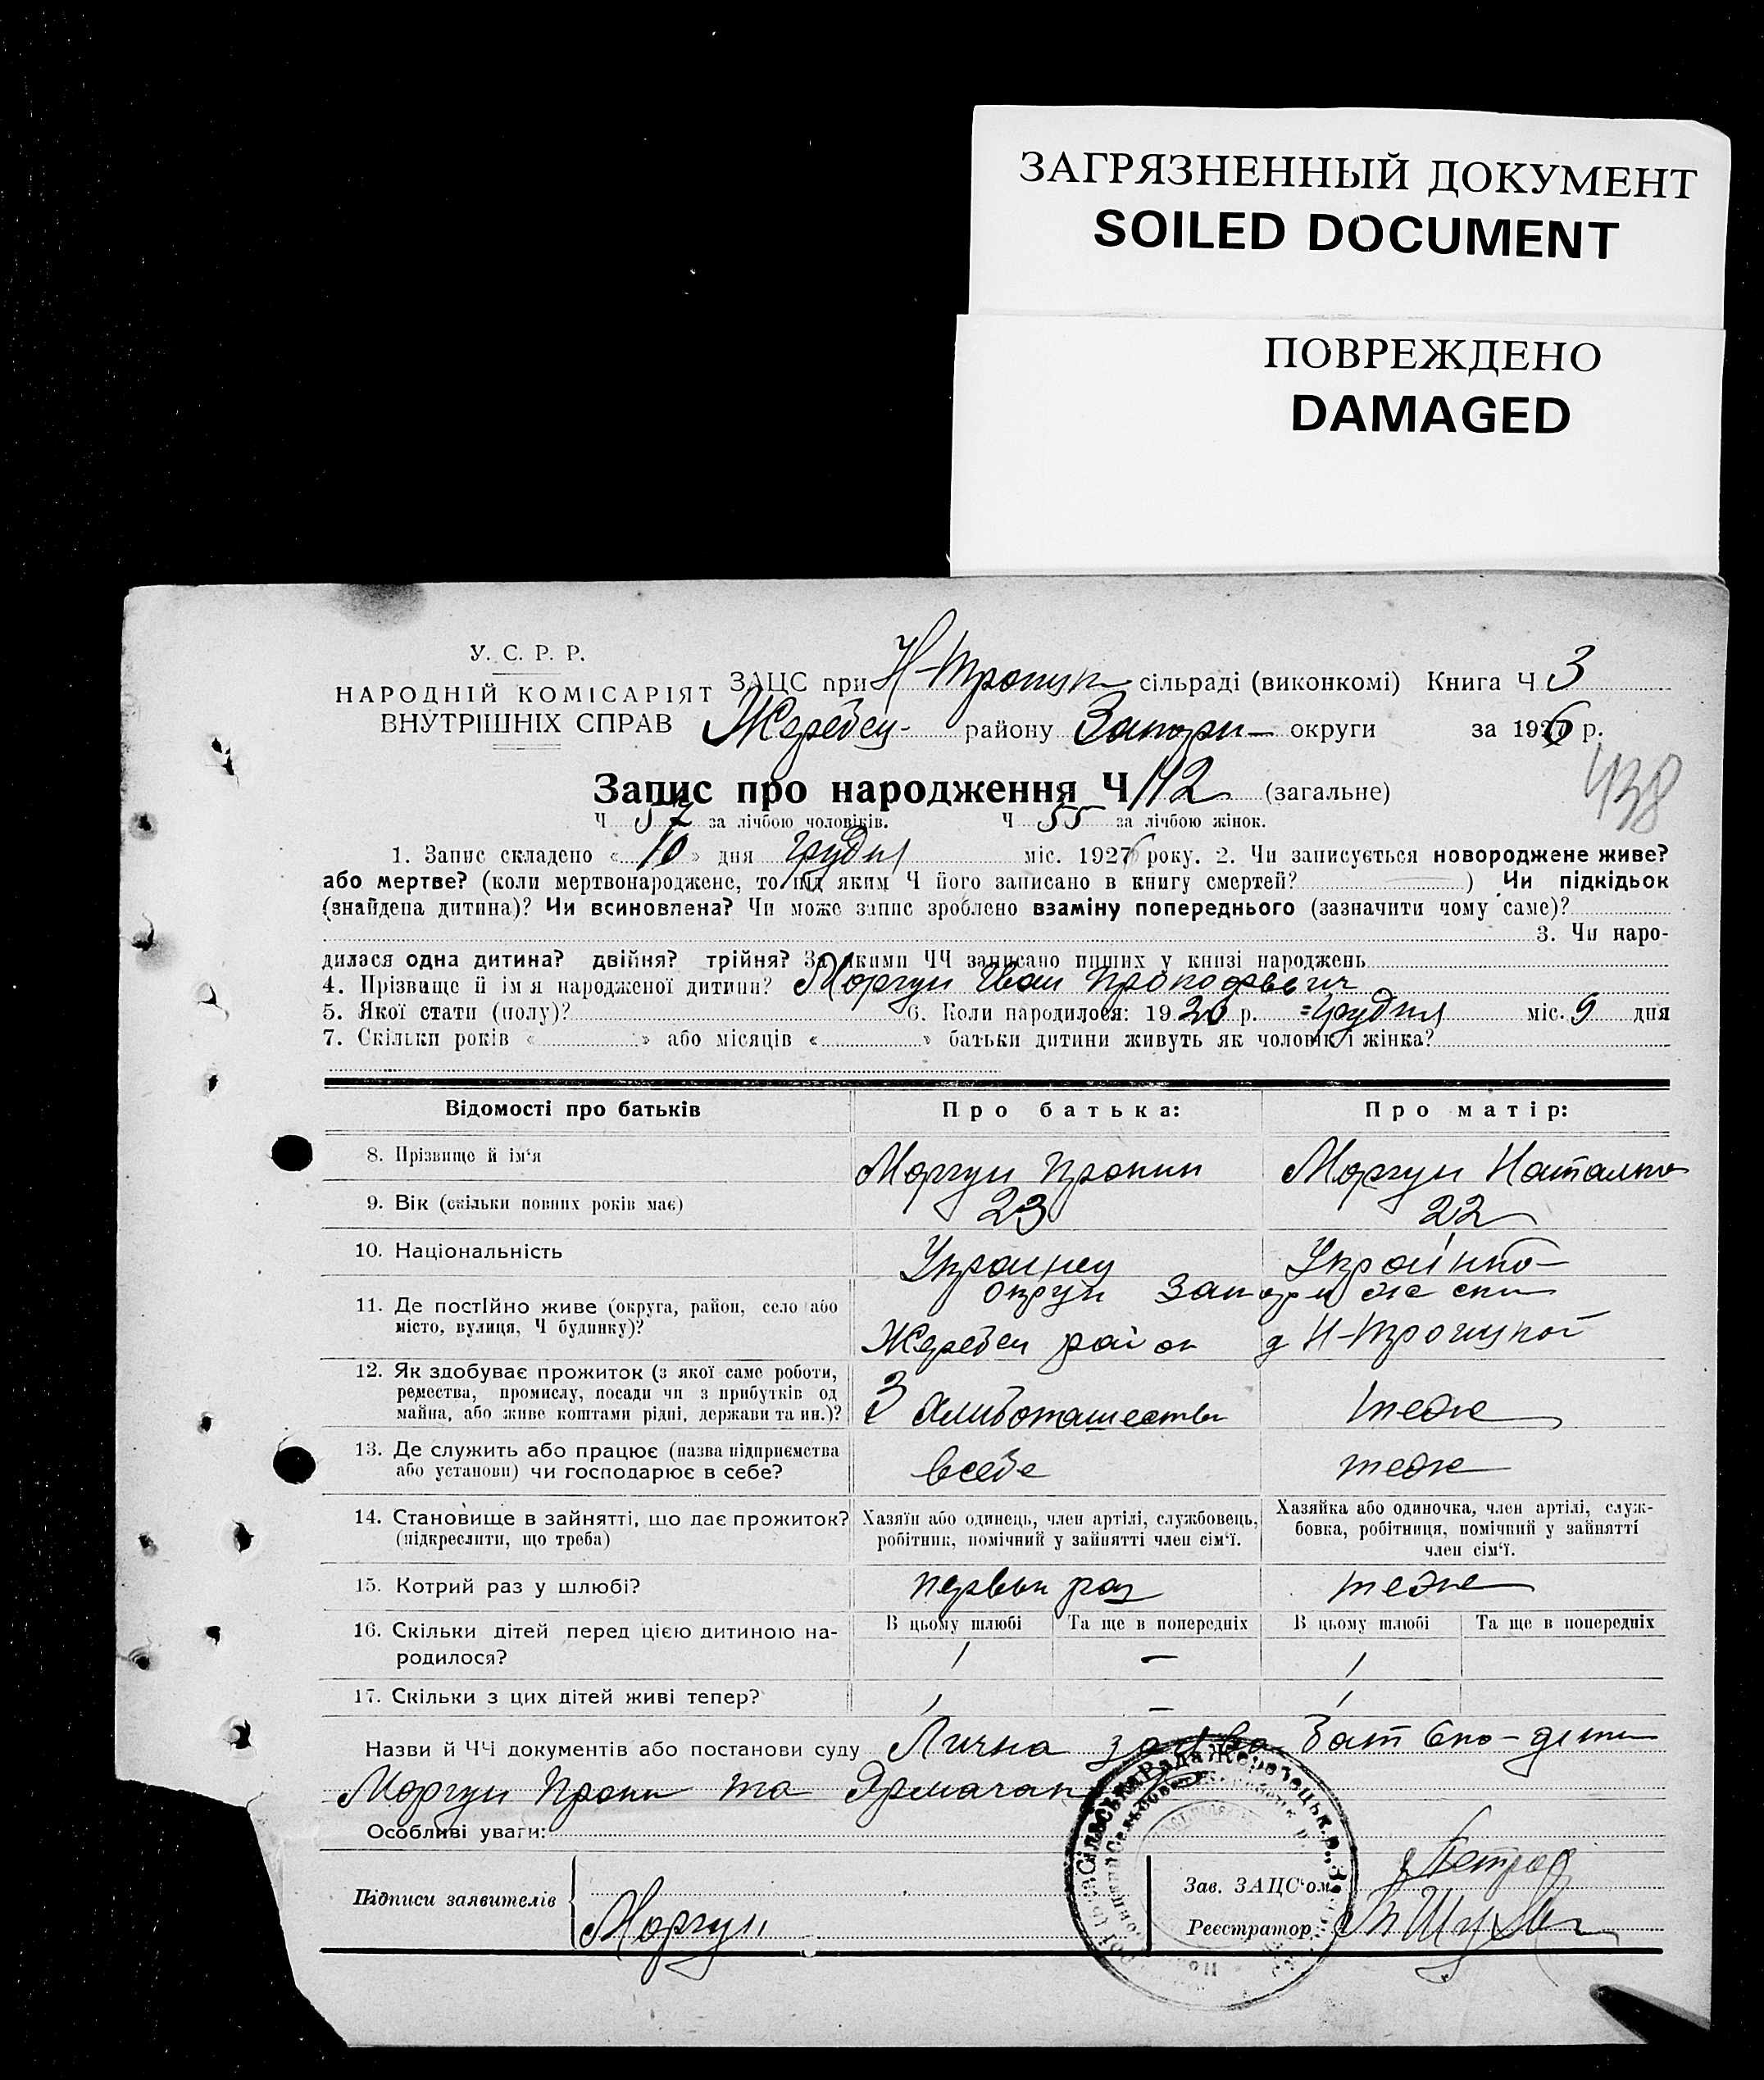 ЗАГРЯЗНЕННЫЙ ДОКУМЕНТ
SOILED DOCUMENT
ПОВРЕЖДЕНО
DAMAGED
У. С. Р. Р.
НАРОДНІЙ КОМІСАРІЯТ
ВНУТРІШНІХ СПРАВ
ЗАЦС при сільраді (виконкомі) Книга Ч 3
Жеребец- району Запори- округи за 1926 р.
438
Запис про народження Ч 112 (загальне)
Ч 57 за лічбою чоловіків. Ч 55 за лічбою жінок.
1. Запис складено « 10 » дня грудня міс. 1926 року. 2. Чи записується новороджене живе?
або мертве? (коли мертвонароджене, то під яким Ч його записано в книгу смертей? ) Чи підкідьок
(знайдена дитина)? Чи всиновлена? Чи може запис зроблено взаміну попереднього (зазначити чому саме)?
3. Чи наро-
дилася одна дитина? двійня? трійня? За якими ЧЧ записано инших у книзі народжень
4. Прізвище й імя народженої дитини? Моргун Иван Прокофьвич
5. Якої стати (полу)? 6. Коли народилося: 1926 р. грудня міс. 9 дня
7. Скільки років « » або місяців « » батьки дитини живуть як чоловік і жінка?
Відомості про батьків Про батька: Про матір:
8. Прізвище й ім'я Моргун Моргун Наталка
9. Вік (скільки повних років має) 23 22
10. Національність Украинец Украінка
11. Де постІйно живе (округа, район, село або
місто, вулиця, Ч будинку)?
округи
Жеребец район
12. Як здобуває прожиток (з якої саме роботи,
ремества, промислу, посади чи з прибутків од
майна, або живе коштами рідні, держави та ин.)?
З теж
13. Де служить або працює (назва підприємства
або установи) чи господарює в себе?
всебе теж
14. Становище в зайнятті, що дає прожиток?
(підкреслити, що треба)
Хазяїн або одинець, член артілі, службовець,
робітник, помічний у зайнятті член сім'ї.
Хазяйка або одиночка, член артілі, служ-
бовка, робітниця, помічний у зайнятті
член сім'ї.
15. Котрий раз у шлюбі? первый раз теже
16. Скільки дітей перед цією дитиною на-
родилося?
В цьому шлюбі Та ще в попередніх В цьому шлюбі Та ще в попередніх
1 — 1
17. Скільки з цих дітей живі тепер? 1 — 1
Назви й ЧЧ документів або постанови суду Лична заява
Моргун та
Особливі уваги:
Підписи заявителів
Моргун
Зав. ЗАЦС'ом
Реєстратор